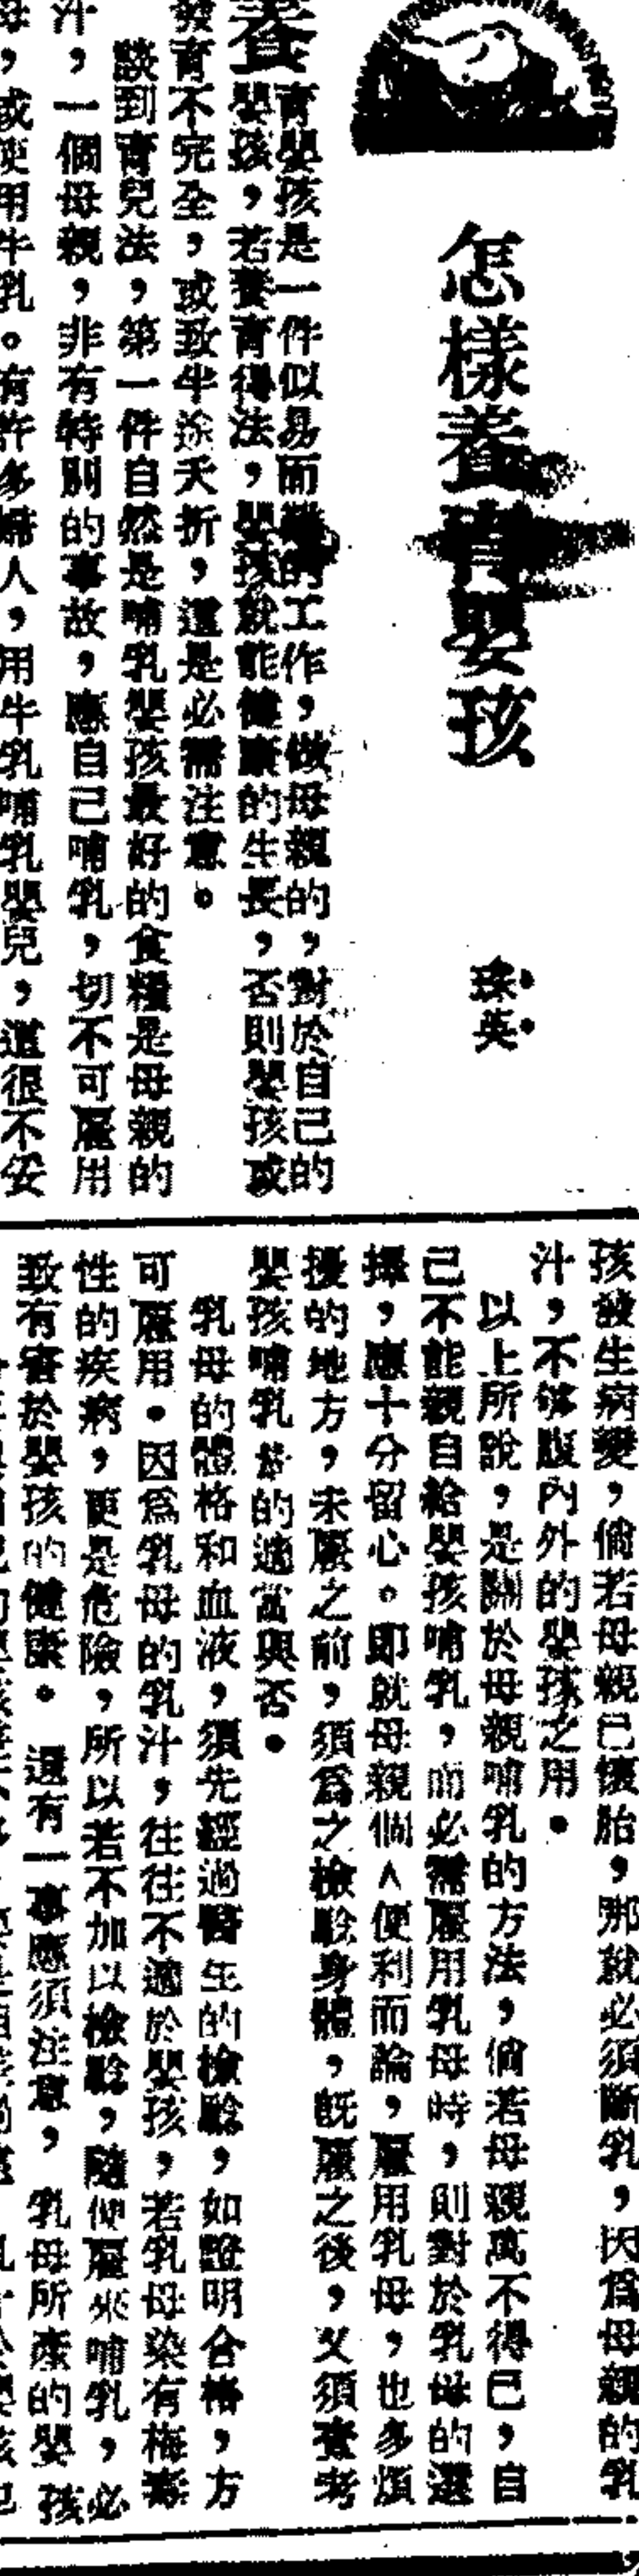 怎樣養育嬰孩
珠英
養育嬰孩是一件似易而難的工作，做母親的，對於自己的
嬰孩，若養育得法，嬰孩就能健康的生長，否則嬰孩或
發育不完全，或致半途夭折，這是必需注意。
談到育兒法，第一件自然是哺乳嬰孩最好的食糧是母親的
汁，一個母親，非有特別的事故，應自己哺乳，切不可雇用
母，或使用牛乳。有許多婦人，用牛乳哺乳嬰兒，這很不妥
孩發生病變，倘若母親已懷胎，那就必須斷乳，因爲母親的乳
汁，不够腹內外的嬰孩之用。
以上所說，是關於母親哺乳的方法，倘若母親萬不得已，自
己不能親自給嬰孩哺乳，而必需雇用乳母時，則對於乳母的選
擇，應十分留心。即就母親個人便利而論，雇用乳母，也多煩
擾的地方，未雇之前，須爲之檢驗身體，旣雇之後，又須查考
嬰孩哺乳量的適當與否。
乳母的體格和血液，須先經過醫生的檢驗，如證明合格，方
可雇用。因爲乳母的乳汁，往往不適於嬰孩，若乳母染有梅毒
性的疾病，更是危險，所以若不加以檢驗，隨便雇來哺乳，必
致有害於嬰孩的健康。還有一事應須注意，乳母所產的嬰孩